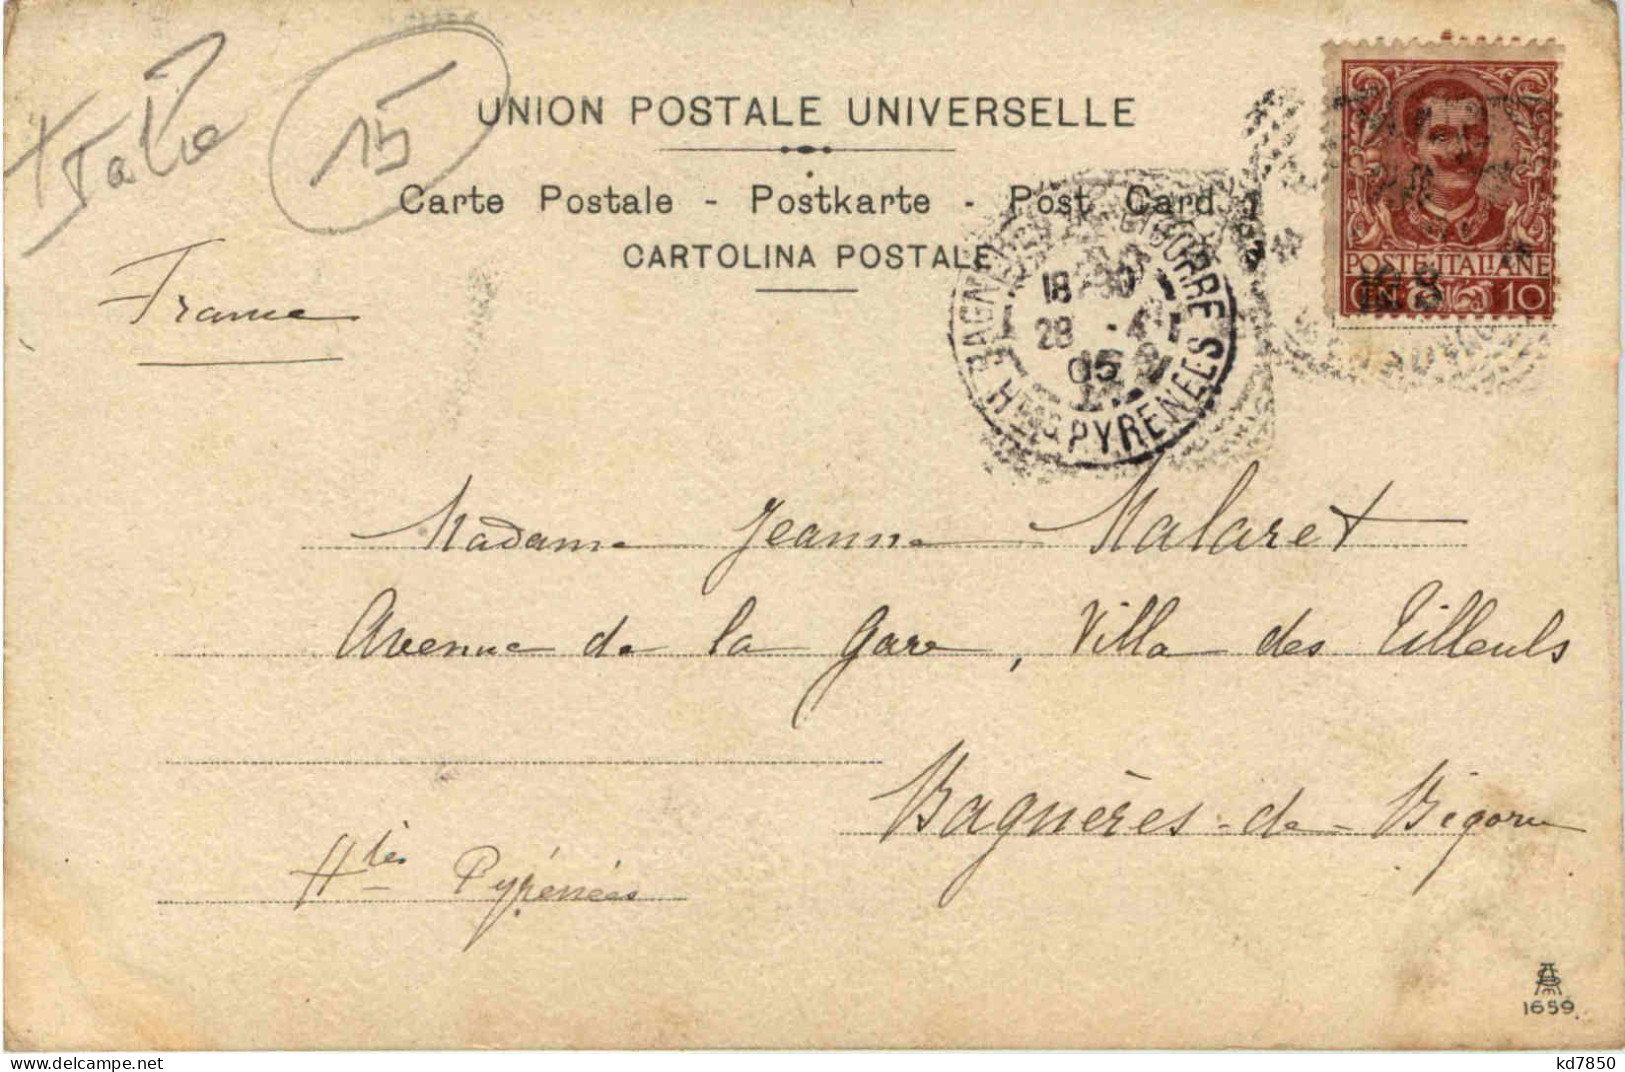 Italie
15
UNION POSTALE UNIVERSELLE
Carte Postale - Postkarte - Post Card
CARTOLINA POSTALE
France
POSTE ITALIANE
10
BAGNERES DE BIGORRE
18 30
28
05
HTES PYRENEES
Madame Jeanne Malaret
Avenue de la Gare, Villa des Tilleuls
Bagnères-de-Bigorre
Htes Pyrénées
1659
delcampe.net
kd7850